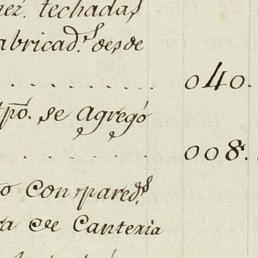 ner. techadas
abricad.s desde
. . . . . . . . . . 040.
tpõ. se agregó
. . . . . . . . . . 008.
o con pared.s
ra de Canteria